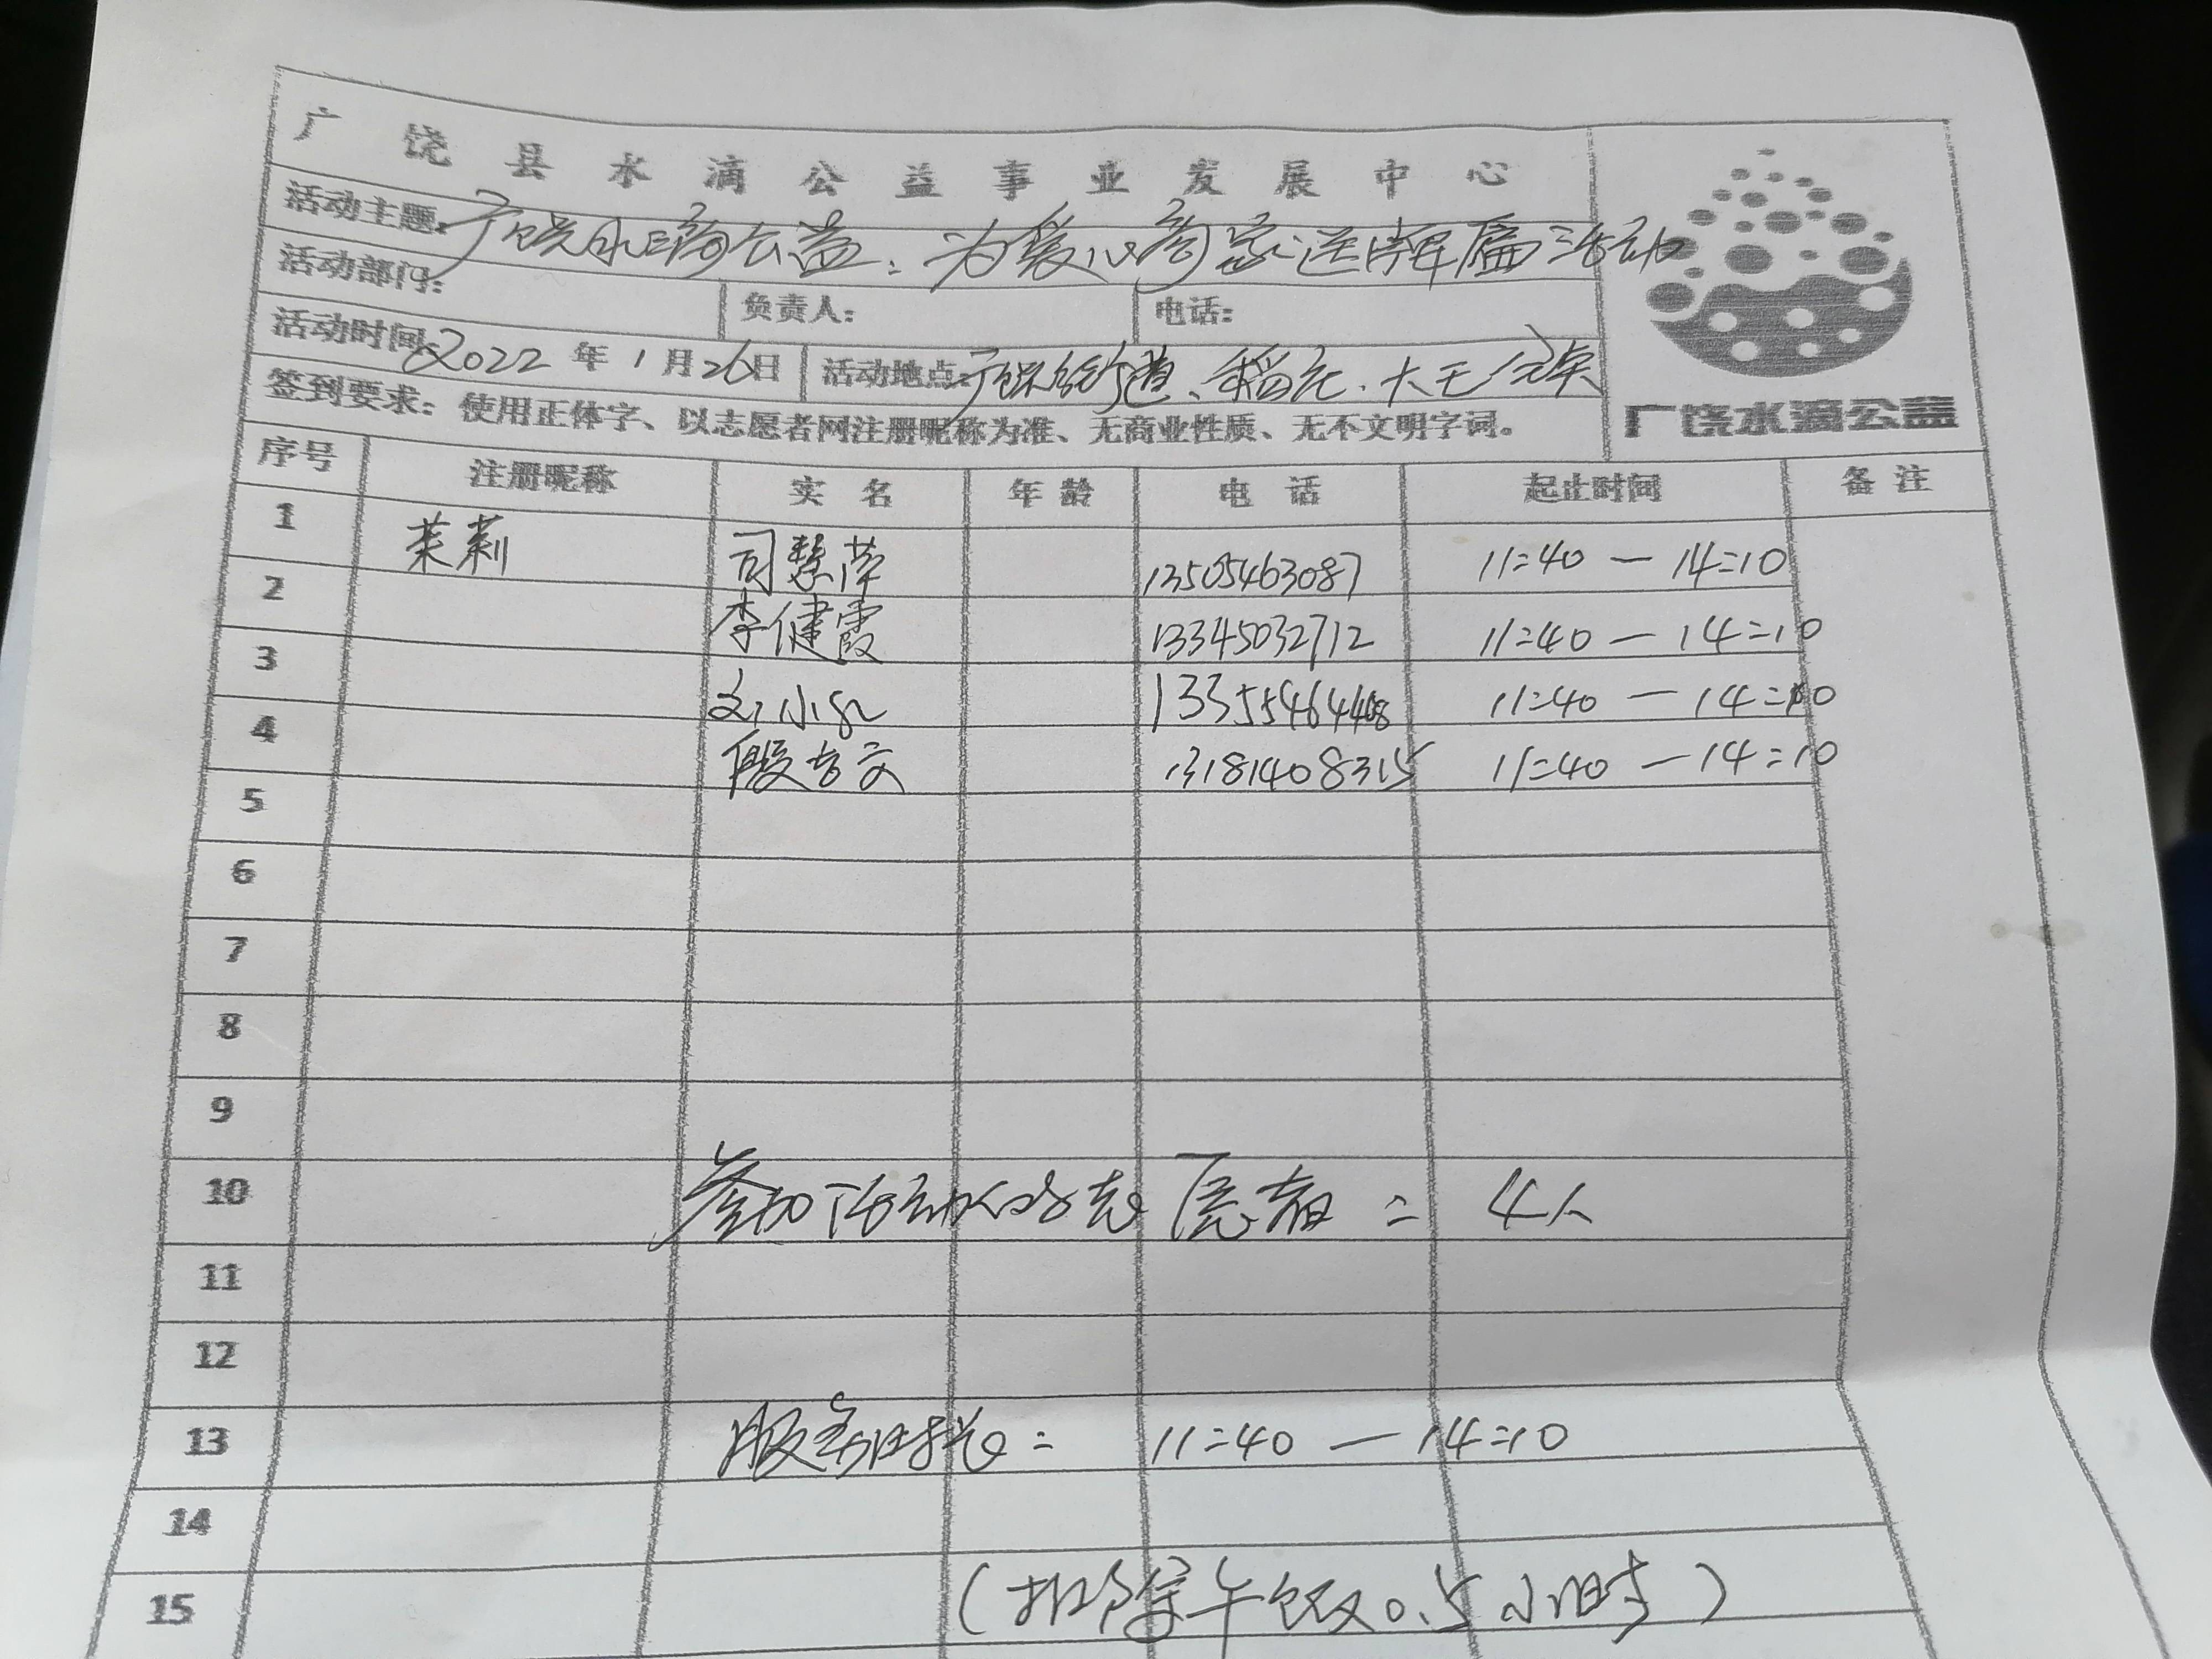 广饶县水滴公益事业发展中心
活动主题：广饶水滴公益：为爱心商家送牌匾活动
活动部门： 负责人： 电话：
活动时间：2022年1月26日 活动地点：广饶街道、稻庄、大王
签到要求：使用正体字、以志愿者网注册昵称为准、无商业性质、无不文明字词。
广饶水滴公益
序号 注册昵称 实名 年龄 电话 起止时间 备注
1 茉莉 司慧萍 13505463087 11:40 — 14:10
2 李健霞 13345032712 11:40 — 14:10
3 刘小红 13355464408 11:40 — 14:10
4 殷吉文 13181408315 11:40 — 14:10
5
6
7
8
9
10 参加活动的志愿者： 4人
11
12
13 服务时长： 11:40 — 14:10
14
15 （扣除午饭0.5小时）